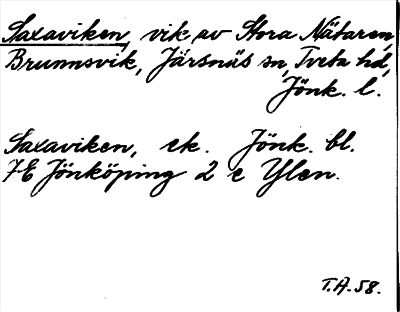 Saxaviken, vik av Stora Nätaren,
Brunnsvik, Järsnäs sn, Tveta hd,
Jönk. l.
Saxaviken, ek. Jönk. bl.
7E Jönköping 2 e Ylen.
T.A.58.